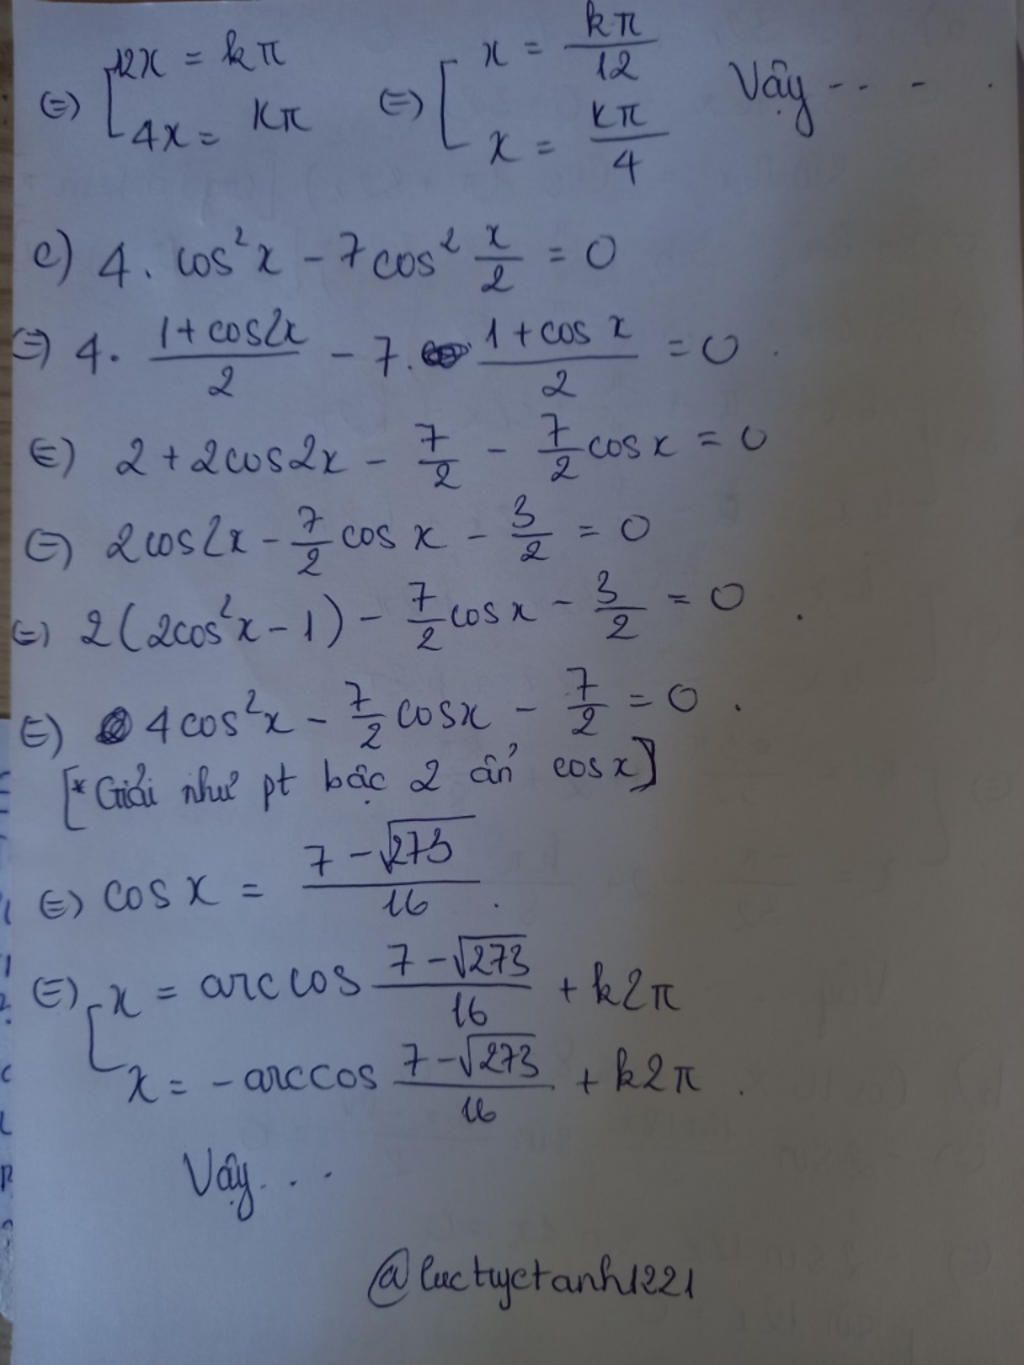 ⇔ [ 12x = kπ ⇔ [ x = kπ/12 Vậy ....
4x = kπ x = kπ/4
c) 4. cos²x - 7cos² x/2 = 0
⇔ 4. (1+cos2x)/2 - 7. (1+cos x)/2 = 0
⇔ 2+2cos2x - 7/2 - 7/2 cosx = 0
⇔ 2cos2x - 7/2 cos x - 3/2 = 0
⇔ 2(2cos²x-1) - 7/2 cosx - 3/2 = 0
⇔ 4cos²x - 7/2 cosx - 7/2 = 0.
[* Giải như pt bậc 2 ẩn cosx]
⇔ cosx = (7-√273)/16.
⇔ [ x = arccos (7-√273)/16 + k2π
x = -arccos (7-√273)/16 + k2π.
Vậy...
@luctuyetanh1221